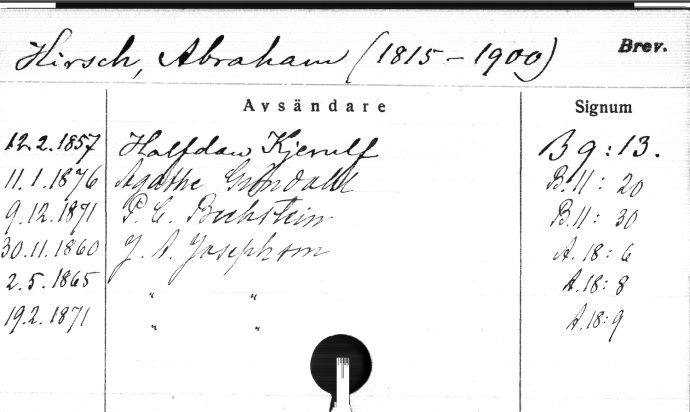 Hirsch, Abraham (1815 – 1900) Brev.
Avsändare Signum
12.2.1857 Halfdan Kjerulf B 9:13.
11.1.1876 Agathe Gröndahl B.11: 20
9.12.1871 P. E. Bechstein B.11: 30
30.11.1860 J. A. Josephson A. 18: 6
2.5.1865 " " A.18: 8
19.2.1871 " " A.18:9